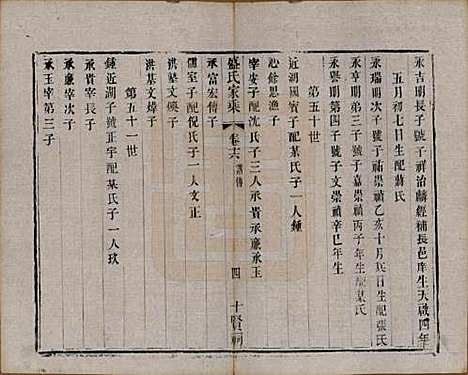 永吉明長子號子祥治麟經補長邑庠生天啟四年
五月初七日生配蔣氏
永瑞明次子號子 崇禎乙亥十月 日生配張氏
永亨明第三子號子嘉崇禎丙子年生配葉氏
永譽明第四子號子文崇禎辛巳年生
第五十世
近湖國賓子配某氏子一人鍾
心餘思漁子
宰安子配沈氏子三人承貴承廉承玉
盛氏家乘
卷六
四
十賢祠
承富宏傳子
儒室子配倪氏子一人文正
洪塾文 子
洪基文煒子
第五十一世
鍾近湖子號正宇配某氏子一人玖
承貴宰長子
承廉宰次子
承玉宰第三子